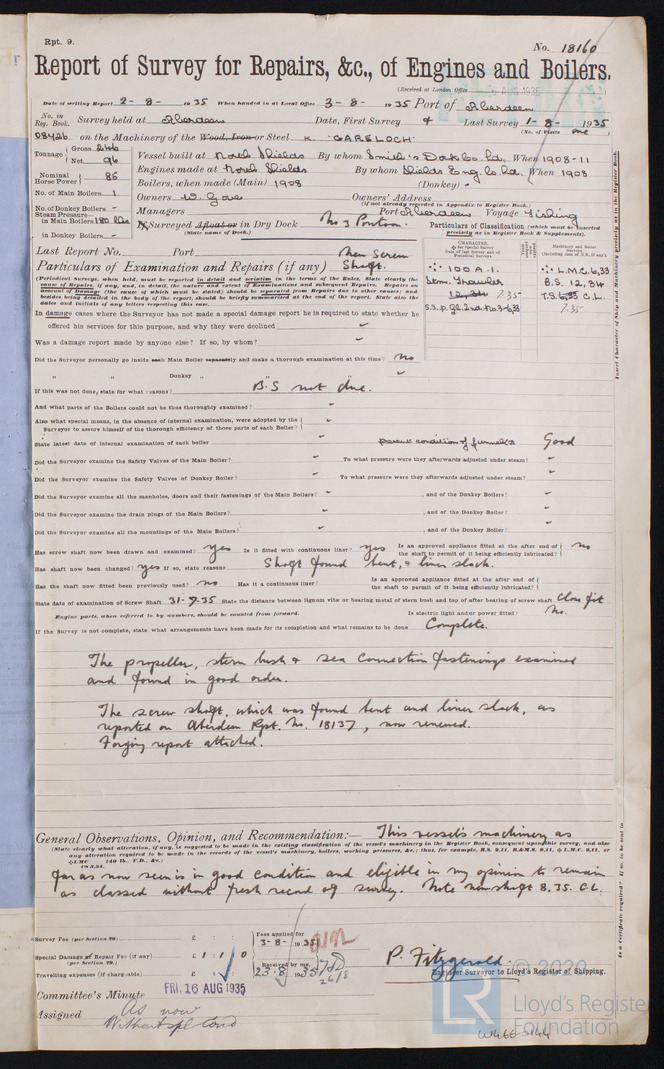 Rpt. 9.
No. 18160
Report of Survey for Repairs, &c., of Engines and Boilers.
(Received at London Office
Date of writing Report 2-8- 1935 When handed in at Local Office 3-8- 1935 Port of Aberdeen
No. in Reg. Book. Survey held at Aberdeen Date, First Survey & Last Survey 1-8- 1935
(No. of Visits one)
08426 on the Machinery of the Wood, Iron or Steel K. "GARELOCH"
Tonnage Gross 246 Net 96
Vessel built at North Shields By whom Smith's Dock Co. Ld. When 1908-11
Nominal Horse Power 86
Engines made at North Shields By whom Shields Eng. Co. Ld. When 1908
No. of Main Boilers 1
Boilers, when made (Main) 1908 (Donkey) -
No. of Donkey Boilers -
Owners Owners' Address
(if not already recorded in Appendix to Register Book.)
Steam Pressure in Main Boilers 180 lbs
Managers Port Aberdeen Voyage Fishing
in Donkey Boilers -
If Surveyed Afloat or in Dry Dock No 3 Pontoon.
(State name of Dock.)
Particulars of Classification (which must be inserted precisely as in Register Book & Supplements).
Last Report No. Port
Particulars of Examination and Repairs (if any) New Screw Shaft.
100 A.1. L.M.C. 6,33
Stm. Trawler B.S. 12,34
12,34 7.35 T.S. 6,33 C.L.
7.35
(Periodical Surveys, when held, must be reported in detail and seriatim in the terms of the Rules. State clearly the cause of Repairs, if any, and, in detail, the nature and extent of Examinations and subsequent Repairs. Repairs on account of Damage (the cause of which must be stated) should be separated from Repairs due to other causes; and besides being detailed in the body of the report, should be briefly summarized at the end of the report. State also the dates and initials of any letters respecting this case.
In damage cases where the Surveyor has not made a special damage report he is required to state whether he offered his services for this purpose, and why they were declined
Was a damage report made by anyone else? If so, by whom?
Did the Surveyor personally go inside each Main Boiler separately and make a thorough examination at this time? no
" " Donkey " "
If this was not done, state for what reasons? B.S not due.
And what parts of the Boilers could not be thus thoroughly examined?
Also what special means, in the absence of internal examination, were adopted by the Surveyor to assure himself of the thorough efficiency of those parts of each Boiler?
State latest date of internal examination of each boiler present condition of funnel Good
Did the Surveyor examine the Safety Valves of the Main Boiler? To what pressure were they afterwards adjusted under steam?
Did the Surveyor examine the Safety Valves of Donkey Boiler? To what pressure were they afterwards adjusted under steam?
Did the Surveyor examine all the manholes, doors and their fastenings of the Main Boilers? , and of the Donkey Boilers?
Did the Surveyor examine the drain plugs of the Main Boilers? , and of the Donkey Boiler?
Did the Surveyor examine all the mountings of the Main Boilers? , and of the Donkey Boiler?
Has screw shaft now been drawn and examined? yes Is it fitted with continuous liner? yes Is an approved appliance fitted at the after end of the shaft to permit of it being efficiently lubricated? no
Has shaft now been changed? yes If so, state reasons Shaft found bent, & liner slack.
Has the shaft now fitted been previously used? no Has it a continuous liner? Is an approved appliance fitted at the after end of the shaft to permit of it being efficiently lubricated?
State date of examination of Screw Shaft 31-7-35 State the distance between lignum vitæ or bearing metal of stern bush and top of after bearing of screw shaft Close fit
Engine parts, when referred to by numbers, should be counted from forward. Is electric light and/or power fitted? No.
If the Survey is not complete, state what arrangements have been made for its completion and what remains to be done Complete.
The propeller, stern bush & sea connection fastenings examined
and found in good order.
The screw shaft, which was found bent and liner slack, as
reported on Aberdeen Rpt. No. 18137, now renewed.
Forging report attached.
General Observations, Opinion, and Recommendation:— This vessel's machinery as
(State clearly what alteration, if any, is suggested to be made in the existing classification of the vessel's machinery in the Register Book, consequent upon this survey, and also any alteration required to be made in the records of the vessel's machinery, boilers, working pressures, &c.
far as now seen is in good condition and eligible in my opinion to remain
as classed without fresh record of survey. Note new shaft 8.35. C.L.
Survey Fee (per Section 29) £ : :
Special Damage or Repair Fee (if any) (per Section 29.) £ 1 : 1 : 0
Travelling expenses (if chargeable) £ : :
Fees applied for 3-8- 1935
Received by me, 23-8 1935
26/8
P. Fitzgerald
Engineer Surveyor to Lloyd's Register of Shipping.
Committee's Minute FRI. 16 AUG 1935
Assigned As now
Without spl cond
© 2020
LR
Lloyd's Register
Foundation
Insert Character of Ship and Machinery precisely as in the Register Book.